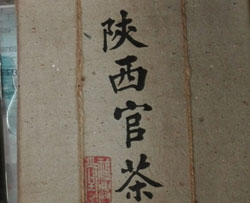 陕西官茶